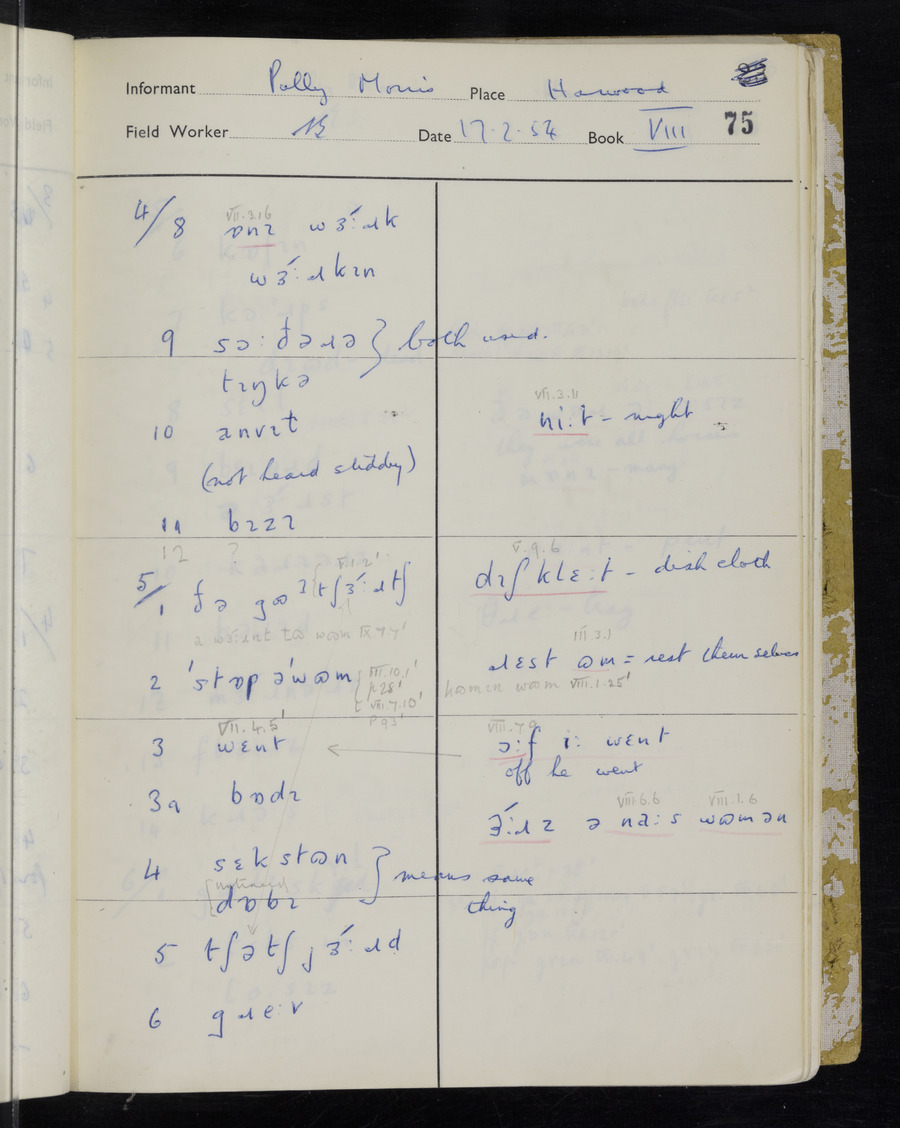 Informant Polly Morris Place Harwood
Field Worker Date 17.2.54 Book VIII 75
4/8 VII.3.16
ɒnɪ wɜ́ːɹk
wɜ́ːɹkɪn
9 sɔːðəɹə } both used.
tɪŋkə
VII.3.11
10 anvɪt
niːt - night
(not heard stiddy)
11 bɪzɪ
12 ?
V.9.6
VII.2'
5/1 ðə gɷ tʃɜ́ːɹtʃ
dɪʃklɛːt - dish cloth
a wɜːɹnt tɷ wɷm IX.7.7'
III.3.1
2 'stɒp ə'wɷm
VIII.10.1'
p 28'
VII.7.10'
p.93'
ɹɛst ɷm = rest themselves
hɷmɪn wɷm VIII.1.25'
VII.4.5'
3 wɛnt
VIII.7.9
ɔːf iː wɛnt
off he went
3a bɒdɪ
VIII.6.6 VIII.1.6
ɜ́ːɹz ə naːs wɷmən
4 sɛkstɷn } means same
dɒbɪ thing
5 tʃətʃjɜ́ːɹd
6 gɹeːv